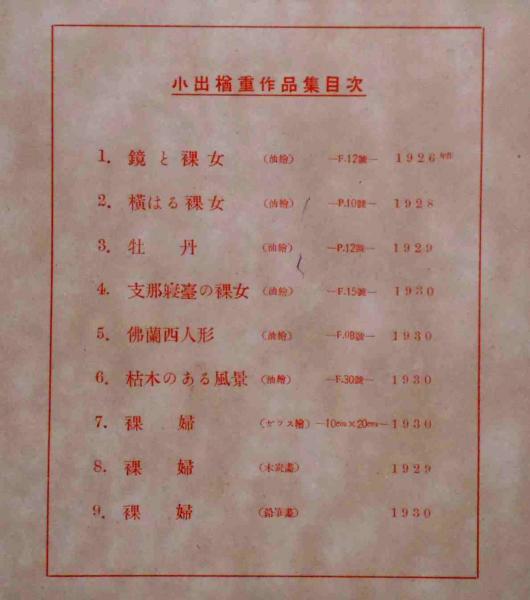 小出楢重作品集目次
1. 鏡と裸女 (油繪) —F.12號— 1926年作
2. 橫はる裸女 (油繪) —P.10號— 1928
3. 牡丹 (油繪) —P.12號— 1929
4. 支那寢臺の裸女 (油繪) —F.15號— 1930
5. 佛蘭西人形 (油繪) —F.08號— 1930
6. 枯木のある風景 (油繪) —F.30號— 1930
7. 裸婦 (ガラス繪) —10cm×20cm— 1930
8. 裸婦 (木炭畫) 1929
9. 裸婦 (鉛筆畫) 1930